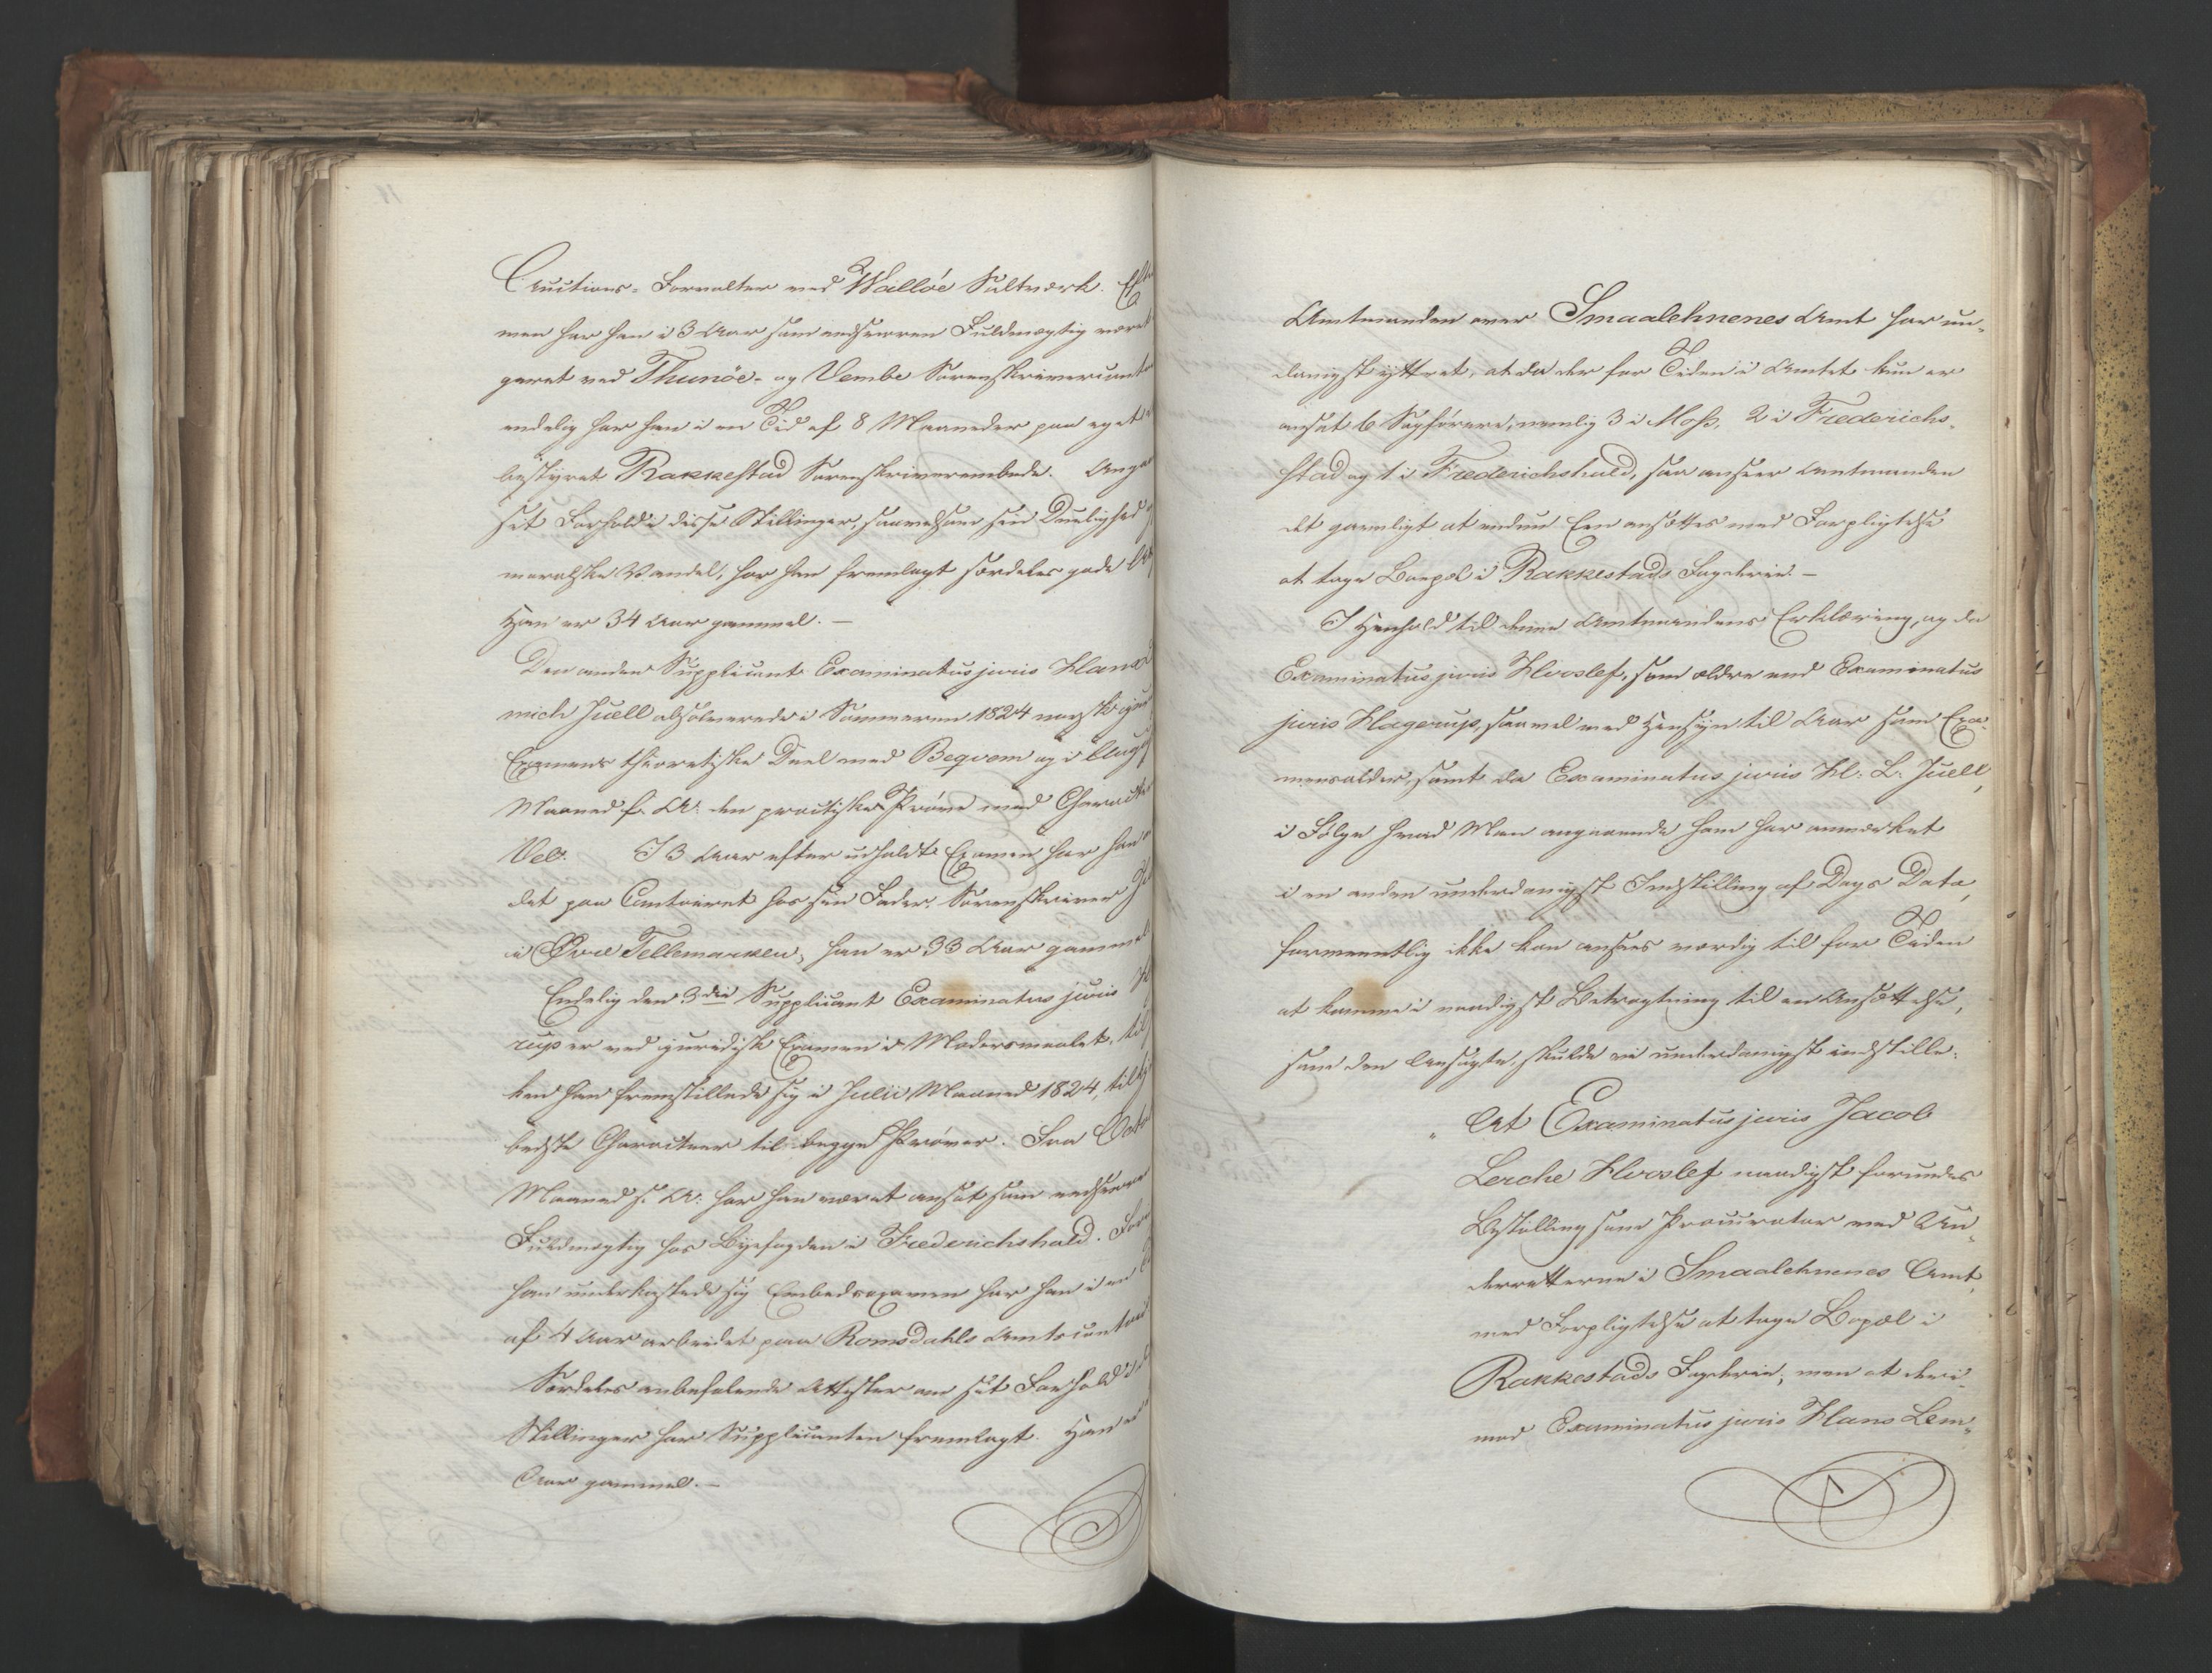 Auctions-Forvalter ved Walløe Saltværk. Efter
men har han i 3 Aar som edsvoren Fuldmægtig været
geret ved Thunöe- og Vembe Sorenskrivercontoir
endelig har han i en Tid af 8 Maaneder paa eget
bestyret Rakkestad Sorenskriverembede. Angaa
sit Forhold i disse Stillinger, saavelsom sin Duelighed
moralske Vandel, har han fremlagt særdeles gode
Han er 34 Aar gammel. —
Den anden Supplicant Examinatus juris Hans
mich Juell absolverede i Sommeren 1824 norsk jur
Examens theoretiske Deel med Beqvem og i Aug
Maaned s. A. den practiske Prøve med Character
Vel. I 3 Aar efter udholdt Examen har han
det paa Contoiret hos sin Fader, Sorenskriver
i Øvre Tellemarken, han er 33 Aar gammel
Endelig den 3die Supplicant Examinatus juris
rup er ved juridisk Examen i Modersmaalet, til
ken han fremstillede sig i Julii Maaned 1824,
bedste Characteer til begge Prøver. Fra Octo
Maaned s. A. har han været ansat som edsvoren
Fuldmægtig hos Byefogden i Frederichshald. Før
han underkastede sig Embedsexamen har han i en
af 4 Aar arbeidet paa Romsdahls Amtscontoir
Særdeles anbefalende Attester om sit Forhold i
Stillinger har Supplicanten fremlagt. Han er
Aar gammel. —
Amtmanden over Smaalehnenes Amt har un-
danigst yttret, at da der for Tiden i Amtet kun er
ansat 6 Sagførere, nemlig 3 i Moss, 2 i Frederich-
stad og 1 i Frederichshald, saa anseer Amtmanden
det gavnligt at endnu Een ansættes med Forpligtelse
at tage Boepæl i Rakkestads Fogderie. —
I Henhold til denne Amtmandens Erklæring, og da
Examinatus juris Hvoslef, som ældre end Examinatus
juris Hagerup, saavel med Hensyn til Aar som Exa-
mensalder, samt da Examinatus juris H. L. Juell,
i Følge hvad Man angaaende ham har anmærket
i en anden underdanigst Indstilling af Dags Dato,
formeentlig ikke kan ansees værdig til for Tiden
at komme i naadigst Betragtning til en Ansættelse,
som den Ansøgte, skulde vi underdanigst indstille:
„At Examinatus juris Jacob
Lerche Hvoslef naadigst forundes
Bestalling som Procurator ved Un-
derretterne i Smaalehnenes Amt,
med Forpligtelse at tage Bopæl i
Rakkestads Fogderie; men at deri-
mod Examinatus juris Hans Lem-